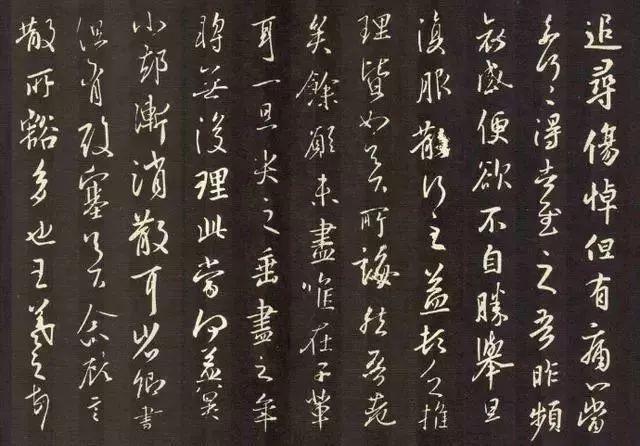 追尋傷悼但有痛心當
奈何々得告慰之吾昨頻
哀感便欲不自勝舉旦
復服散行之益頓乏推
理皆如足下所誨然吾老
矣餘願未盡唯在子輩
耳一旦哭之垂盡之年
將無復理此當何益冀
小却漸消散耳省卿書
但有酸塞足下念故言
散所豁多也王羲之頓首